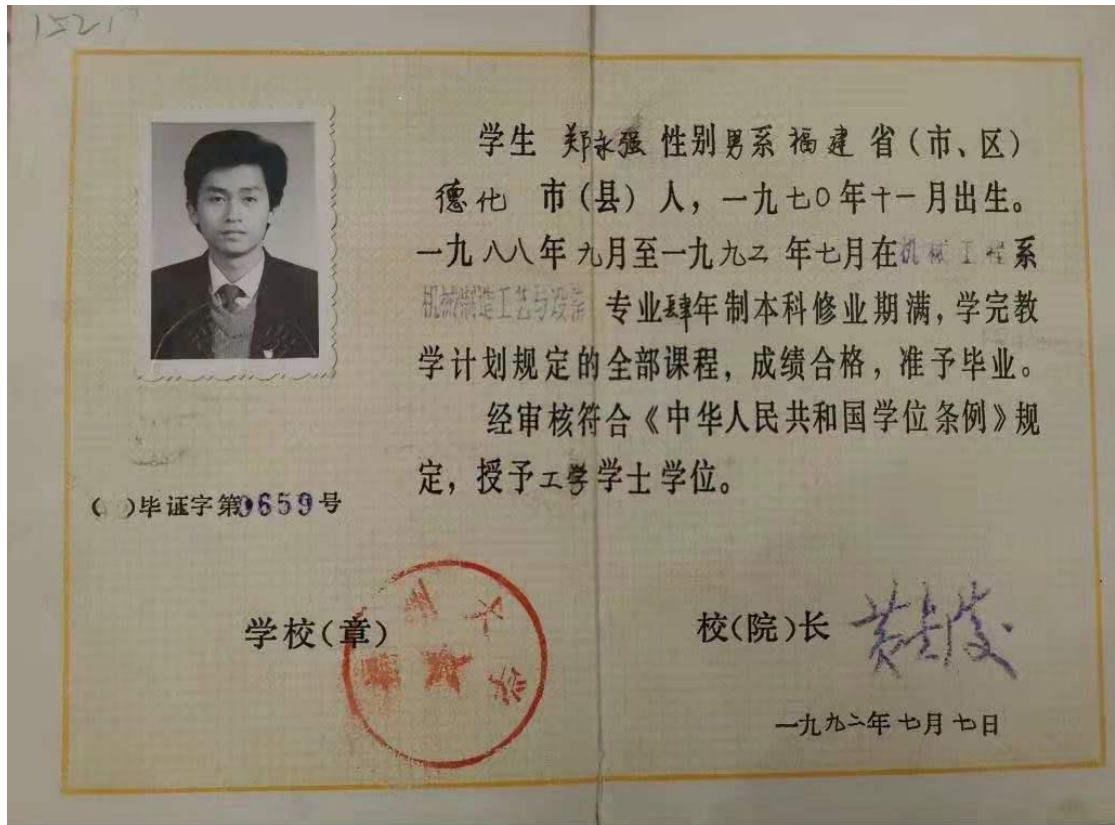 1521
学生 郑永强 性别男系福建省(市、区)
德化 市(县)人,一九七〇年十一月出生。
一九八八年九月至一九九二年七月在机械工程系
机械制造工艺与设备 专业肆年制本科修业期满,学完教
学计划规定的全部课程,成绩合格,准予毕业。
经审核符合《中华人民共和国学位条例》规
定,授予工学学士学位。
( )毕证字第9659号
学校(章)
校(院)长
一九九二年七月七日